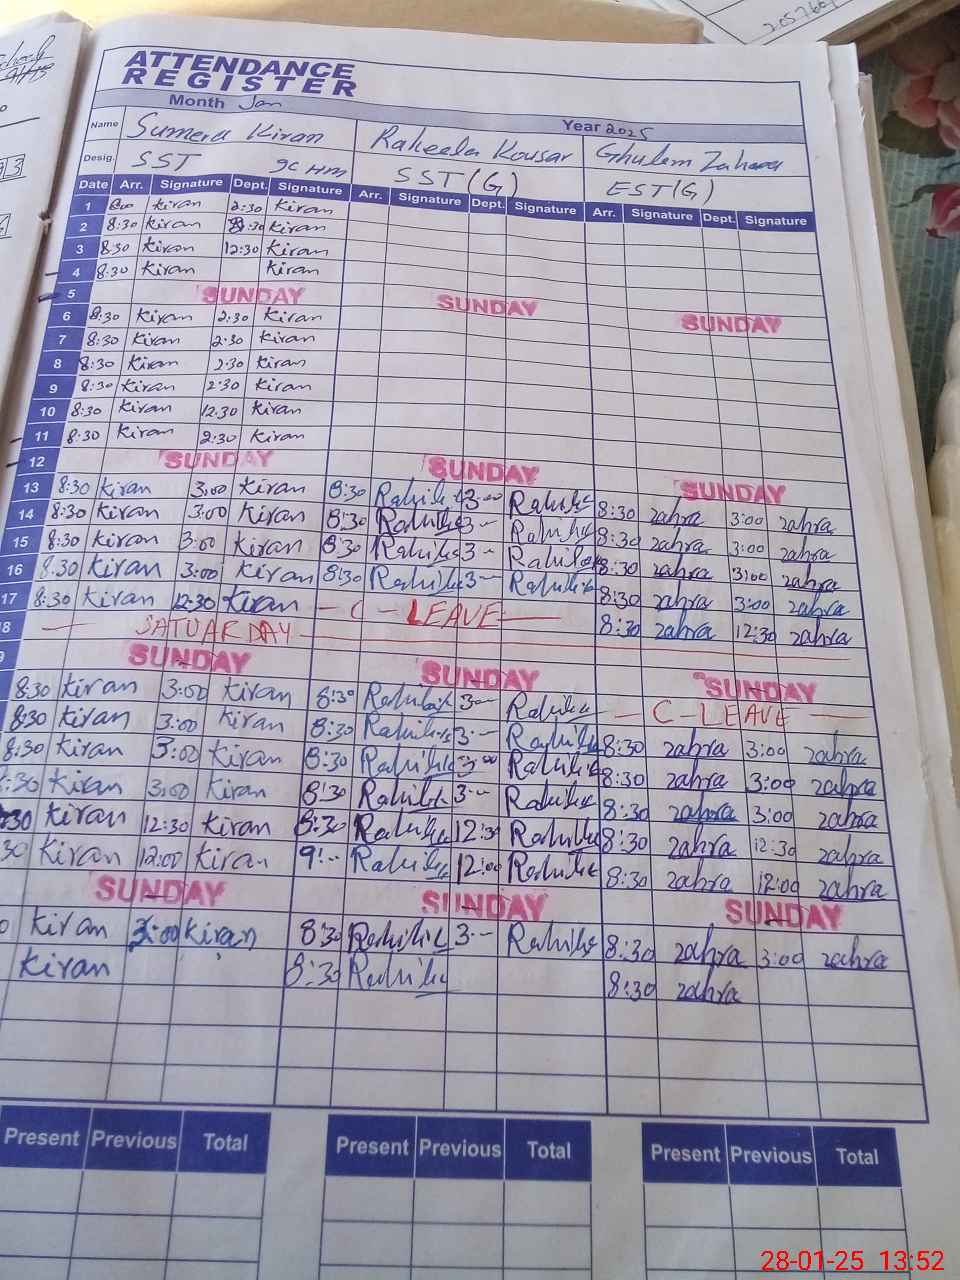 ATTENDANCE
REGISTER
Month Jan Year 2025
Name Sumera Kiran Raheela Kousar Ghulam Zahara
Desig. SST SST(G) EST(G)
Date Arr. Signature Dept. Signature Arr. Signature Dept. Signature Arr. Signature Dept. Signature
1 8:00 Kiran 2:30 Kiran
2 8:30 Kiran :30 Kiran
3 8:30 Kiran 12:30 Kiran
4 8:30 Kiran Kiran
5 SUNDAY SUNDAY SUNDAY
6 8:30 Kiran 2:30 Kiran
7 8:30 Kiran 2:30 Kiran
8 8:30 Kiran 2:30 Kiran
9 8:30 Kiran 2:30 Kiran
10 8:30 Kiran 12:30 Kiran
11 8:30 Kiran 2:30 Kiran
12 SUNDAY SUNDAY SUNDAY
13 8:30 Kiran 3:00 Kiran 8:30 3:00 8:30 zahra 3:00 zahra
14 8:30 Kiran 3:00 Kiran 8:30 3- 8:30 zahra 3:00 zahra
15 8:30 Kiran 3:00 Kiran 8:30 3- 8:30 zahra 3:00 zahra
16 8:30 Kiran 3:00 Kiran 8:30 3- 8:30 zahra 3:00 zahra
17 8:30 Kiran 12:30 Kiran - C - LEAVE - 8:30 zahra 12:30 zahra
18 - SATUARDAY
9 SUNDAY SUNDAY SUNDAY
8:30 Kiran 3:00 Kiran 8:30 3- - C - LEAVE -
8:30 Kiran 3:00 Kiran 8:30 3- 8:30 zahra 3:00 zahra
8:30 Kiran 3:00 Kiran 8:30 3:00 8:30 zahra 3:00 zahra
:30 Kiran 3:00 Kiran 8:30 3- 8:30 zahra 3:00 zahra
:30 Kiran 12:30 Kiran 8:30 12:30 8:30 zahra 12:30 zahra
30 Kiran 12:00 Kiran 9:- 12:00 8:30 zahra 12:00 zahra
SUNDAY SUNDAY SUNDAY
0 Kiran 3:00 Kiran 8:30 3- 8:30 zahra 3:00 zahra
Kiran 8:30 8:30 zahra
Present Previous Total Present Previous Total Present Previous Total
28-01-25 13:52